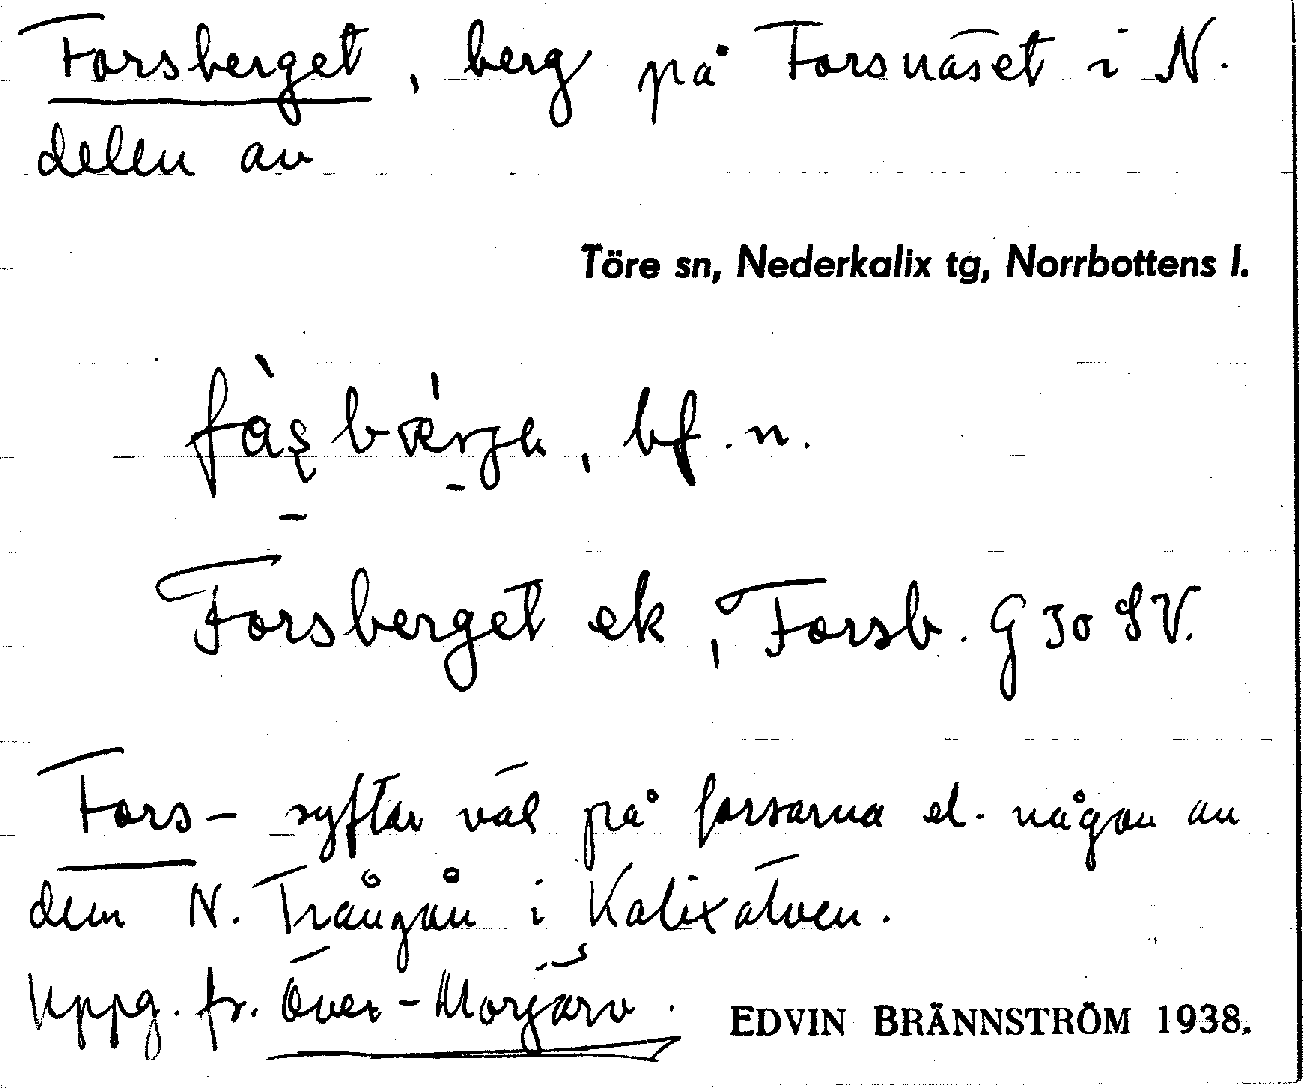 Forsberget, berg på Forsnäset i N.
delen av
Töre sn, Nederkalix tg, Norrbottens l.
fàs̨bǽrjα, bf. n.
Forsberget ek, Forsb. G 30 SV.
Fors- syftar väl på forsarna el. någon av
dem N. Trångån i Kalixälven.
Uppg. fr. Över-Morjärv.
EDVIN BRÄNNSTRÖM 1938.